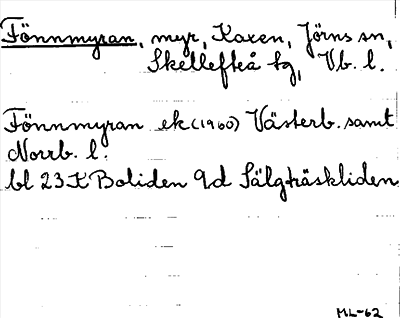 Fönnmyran, myr, Kaxen, Jörns sn,
Skellefteå tg, Vb. l.
Fönnmyran ek (1960) Västerb. samt
Norrb. l.
bl 23 K Boliden 9d Sälgträskliden
ML-62